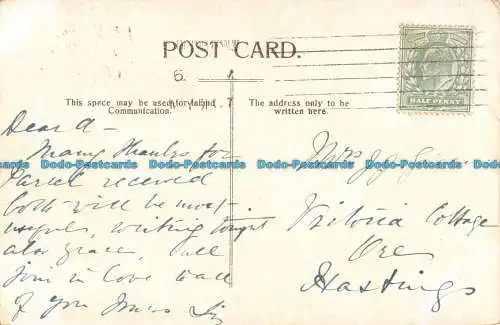 POST CARD.
This space may be used for Inland
Communication.
The address only to be
written here.
HALF PENNY
Dear A-
Many thanks for
Parcel received
both will be most
useful, writing tonight
also Grace, all
join in love to all
of you
Mrs
Victoria Cottage
Ore
Hastings
Bodo-Postcards Bodo-Postcards Bodo-Postcards Bodo-Postcards